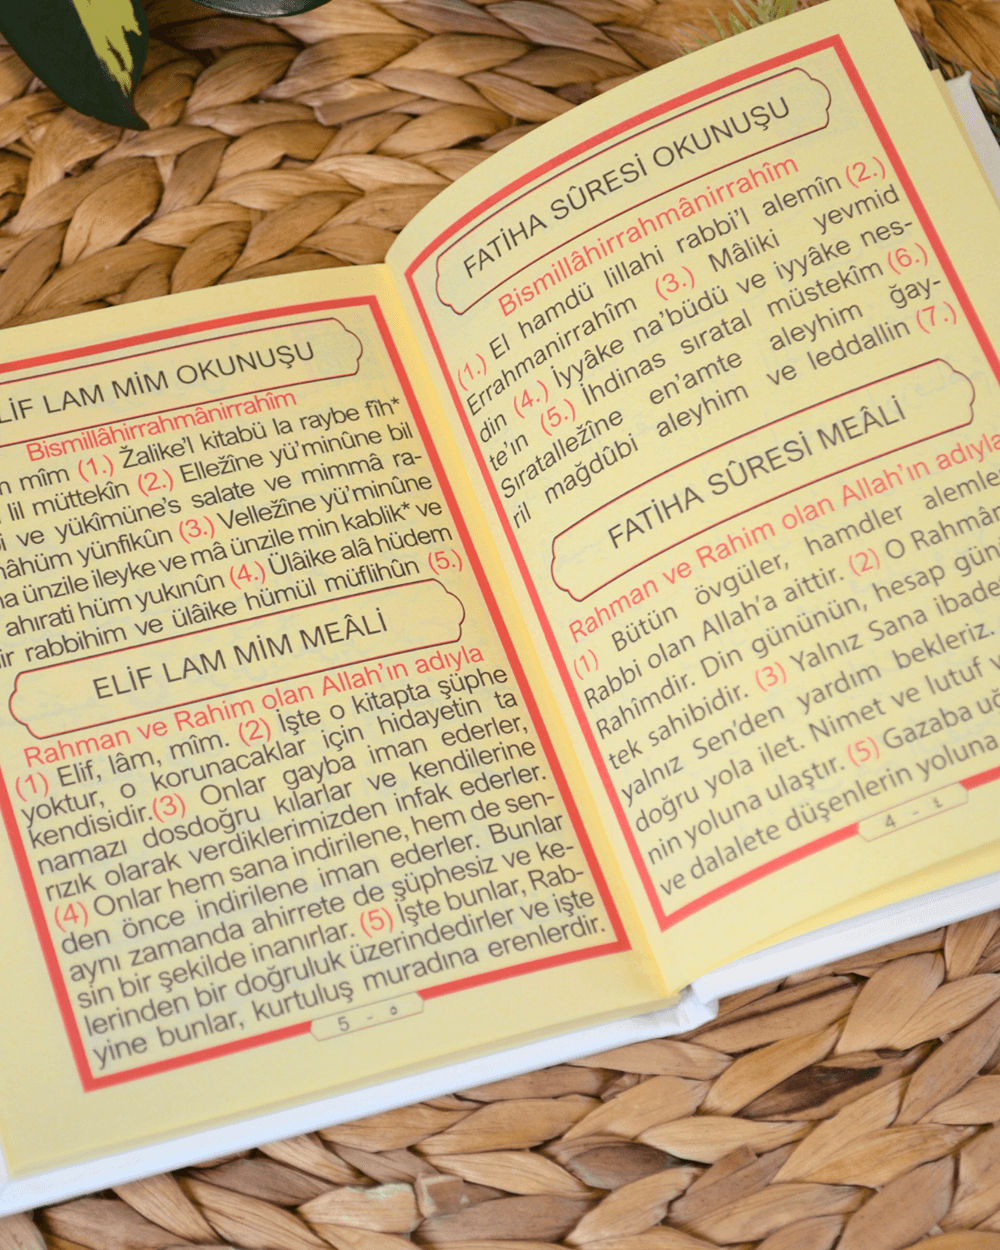 FATİHA SÛRESİ OKUNUŞU
Bismillâhirrahmânirrahîm
(1.) El hamdü lillahi rabbi'l alemîn (2.)
Errahmanirrahîm (3.) Mâliki yevmid
din (4.) İyyâke na'büdü ve iyyâke nes-
te'ın (5.) İhdinas sıratal müstekîm (6.)
Sıratalležîne en'amte aleyhim ğay-
ril mağdûbi aleyhim ve leddallin (7.)
FATİHA SÛRESİ MEÂLİ
Rahman ve Rahim olan Allah'ın adıyla
(1) Bütün övgüler, hamdler alemle
Rabbi olan Allah'a aittir. (2) O Rahmân
Rahîmdir. Din gününün, hesap gün
tek sahibidir. (3) Yalnız Sana ibade
yalnız Sen'den yardım bekleriz.
doğru yola ilet. Nimet ve lutuf
nin yoluna ulaştır. (5) Gazaba uğ
ve dalalete düşenlerin yoluna
4 - ٤
LİF LAM MİM OKUNUŞU
Bismillâhirrahmânirrahîm
mîm (1.) Žalike'l kitabü la raybe fîh*
lil müttekîn (2.) Elležîne yü'minûne bil
ve yükîmüne's salate ve mimmâ ra-
nâhüm yünfikûn (3.) Velležîne yü'minûne
ünzile ileyke ve mâ ünzile min kablik* ve
ahırati hüm yukınûn (4.) Ülâike alâ hüdem
rabbihim ve ülâike hümül müflihûn (5.)
ELİF LAM MİM MEÂLİ
Rahman ve Rahim olan Allah'ın adıyla
(1) Elif, lâm, mîm. (2) İşte o kitapta şüphe
yoktur, o korunacaklar için hidayetin ta
kendisidir.(3) Onlar gayba iman ederler,
namazı dosdoğru kılarlar ve kendilerine
rızık olarak verdiklerimizden infak ederler.
(4) Onlar hem sana indirilene, hem de sen-
den önce indirilene iman ederler. Bunlar
aynı zamanda ahirrete de şüphesiz ve ke-
sin bir şekilde inanırlar. (5) İşte bunlar, Rab-
lerinden bir doğruluk üzerindedirler ve işte
yine bunlar, kurtuluş muradına erenlerdir.
5 - ٥